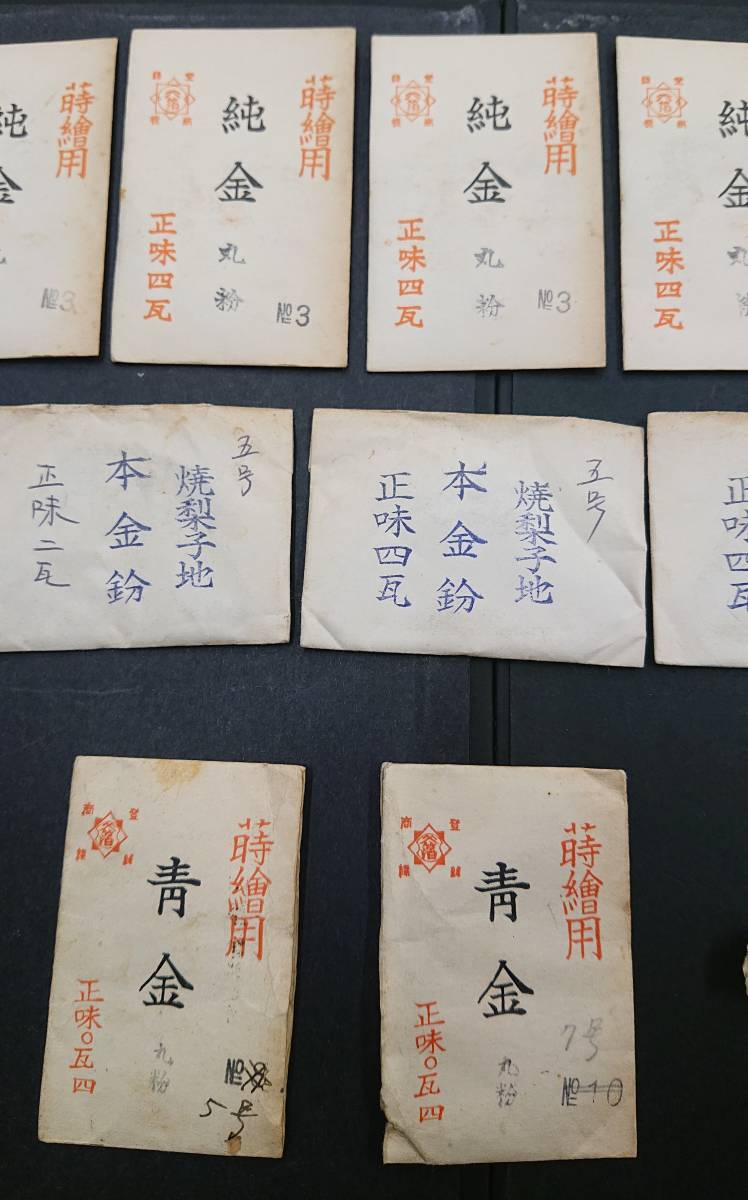 蒔繪用
純金
丸
№3
正味四瓦
蒔繪用
純金
丸粉
№3
正味四瓦
蒔繪用
純金
丸粉
№3
正味四瓦
純金
丸粉
正味四瓦
五号
焼梨子地
本金鈖
正味二瓦
五号
焼梨子地
本金鈖
正味四瓦
正味四瓦
登録商標
蒔繪用
青金
丸粉
№
5号
正味0瓦四
登録商標
蒔繪用
青金
丸粉
7号
№10
正味0瓦四